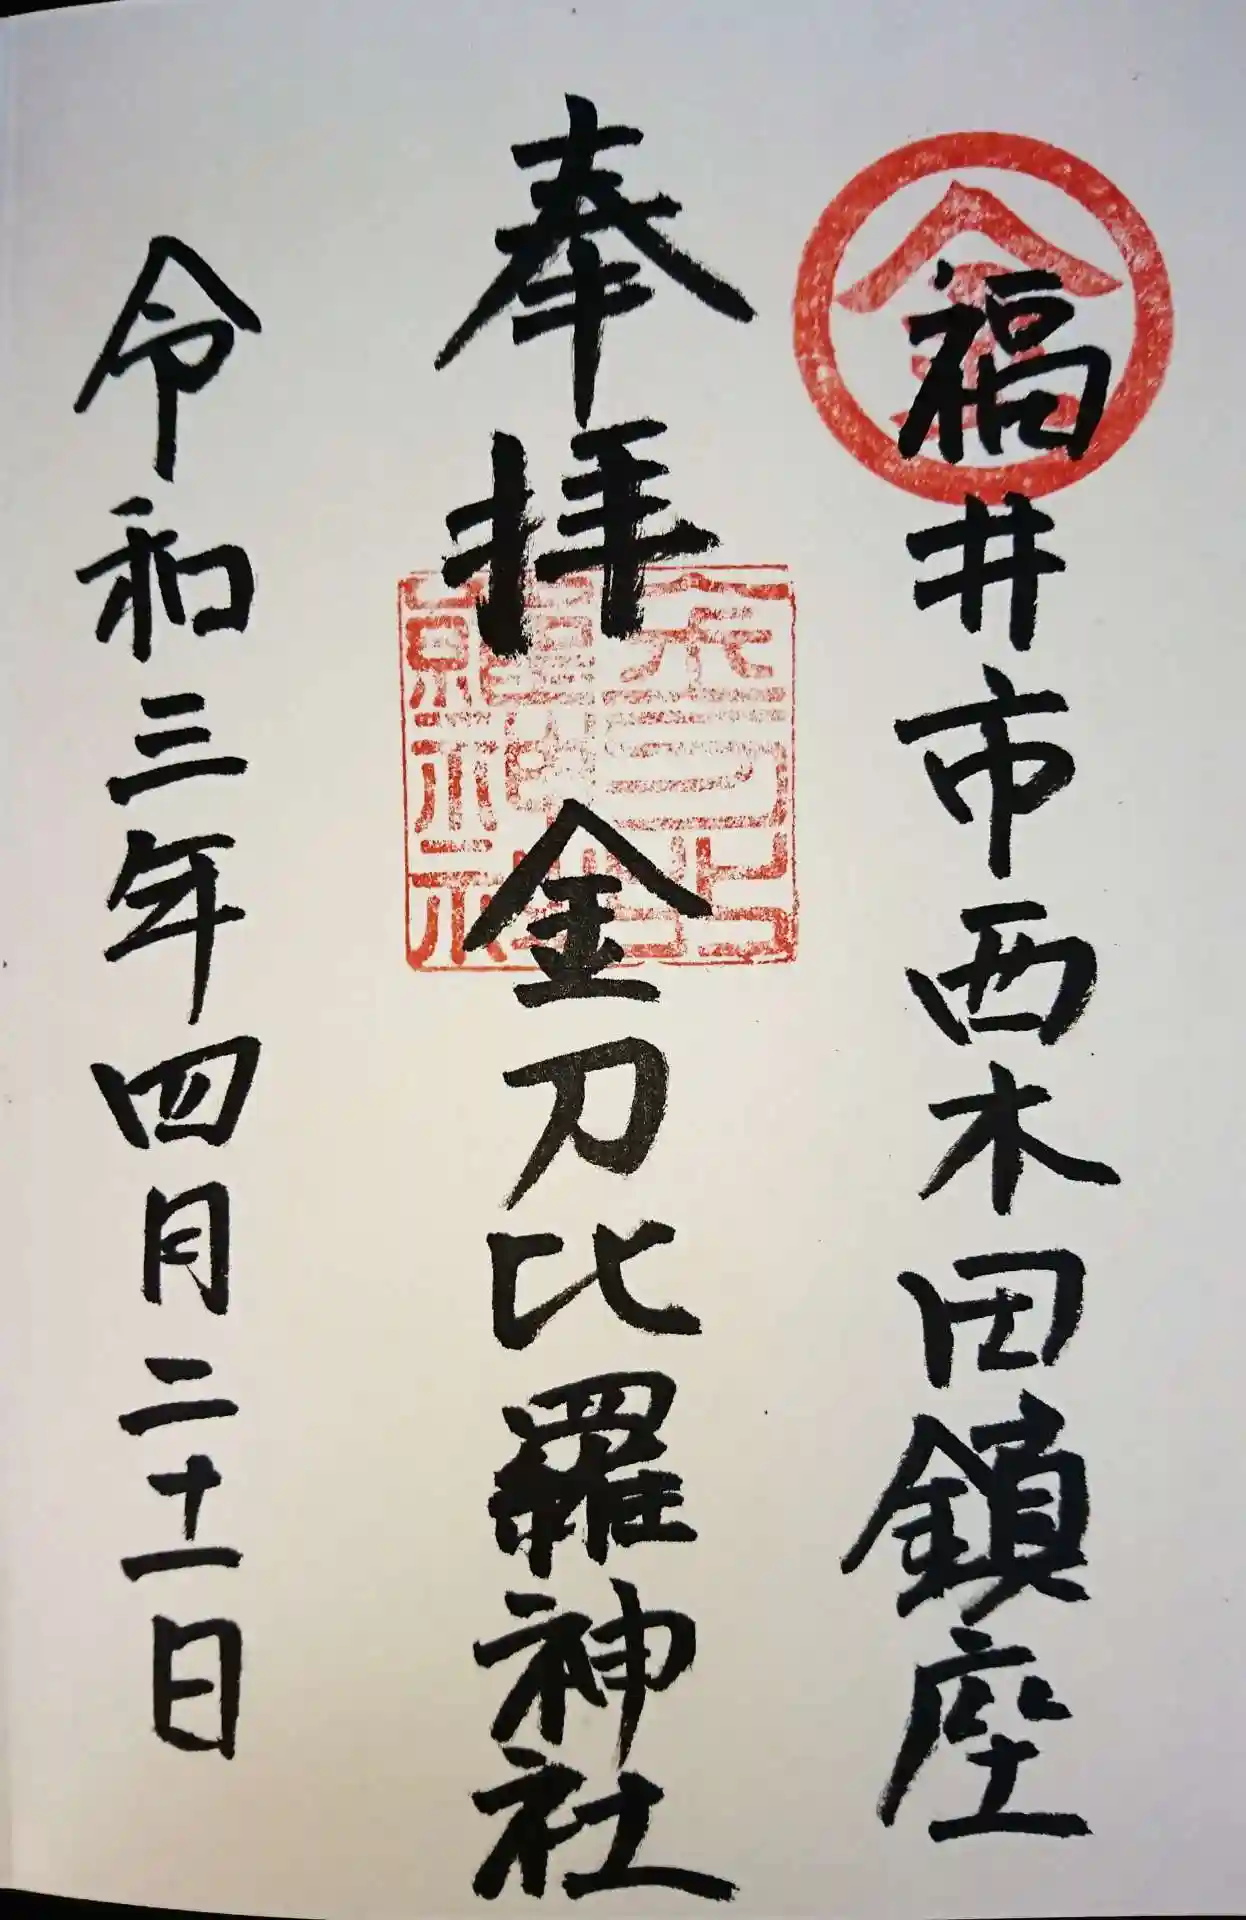 福井市西木田鎮座
奉拝 金刀比羅神社
令和三年四月二十一日
金